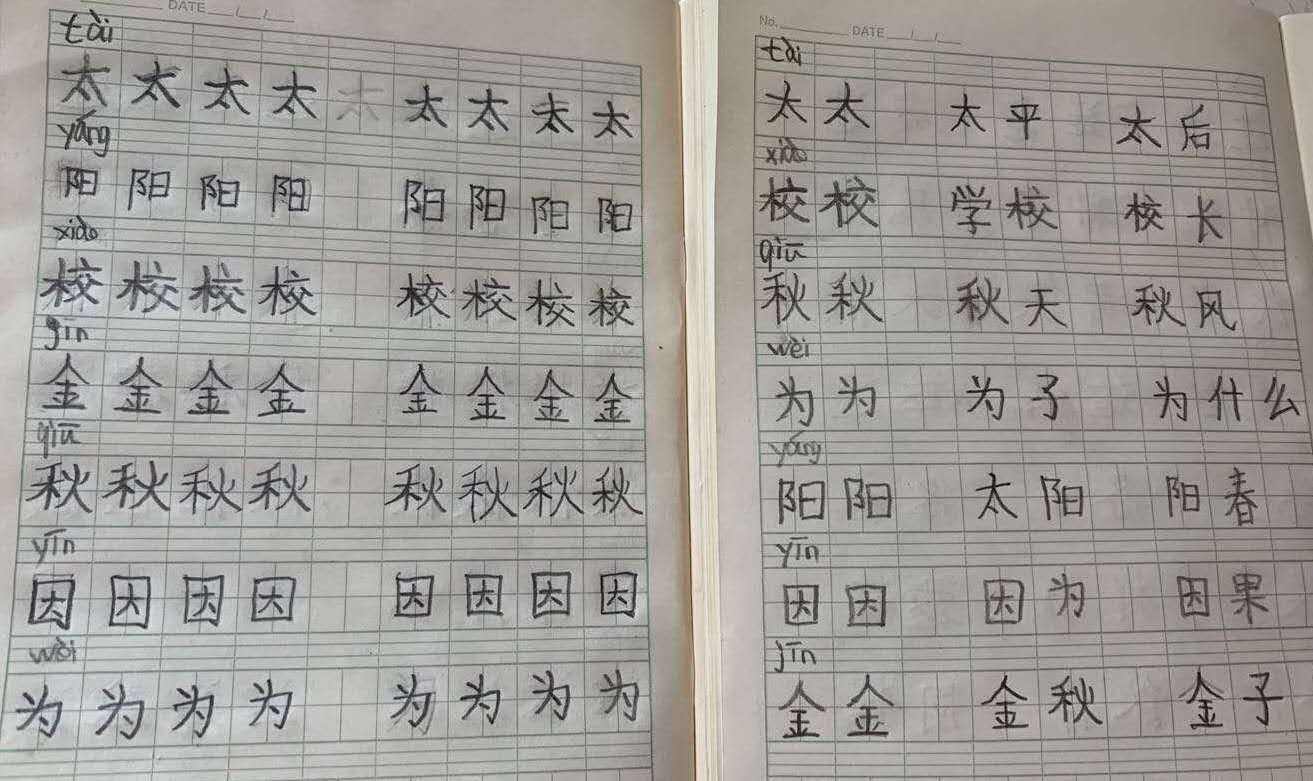 DATE / /
tài
太 太 太 太 太 太 太 太 太
yáng
阳 阳 阳 阳 阳 阳 阳 阳
xiào
校 校 校 校 校 校 校 校
jīn
金 金 金 金 金 金 金 金
qiū
秋 秋 秋 秋 秋 秋 秋 秋
yīn
因 因 因 因 因 因 因 因
wèi
为 为 为 为 为 为 为 为
No. DATE / /
tài
太 太 太平 太后
xiào
校 校 学校 校长
qiū
秋 秋 秋天 秋风
wèi
为 为 为子 为什么
yáng
阳 阳 太阳 阳春
yīn
因 因 因为 因果
jīn
金 金 金秋 金子